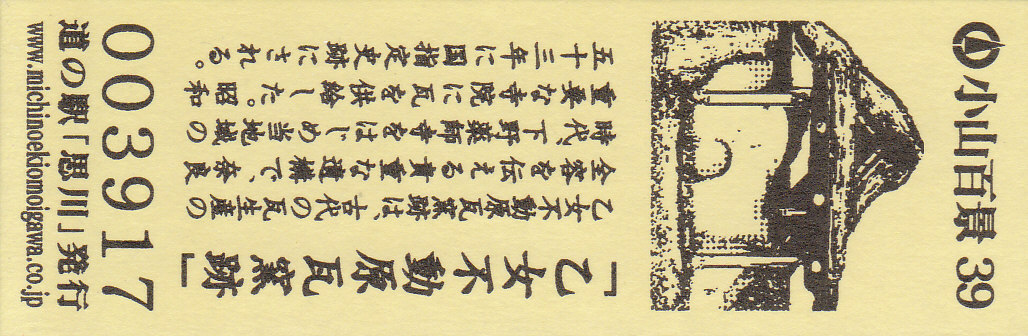 小山百景 39
「乙女不動原瓦窯跡」
乙女不動原瓦窯跡は、古代の瓦生産の
全容を伝える貴重な遺構で、奈良
時代、下野薬師寺をはじめ当地域の
重要な寺院に瓦を供給した。昭和
五十三年に国指定史跡にされる。
003917
道の駅「思川」発行
www.michinoekiomoigawa.co.jp